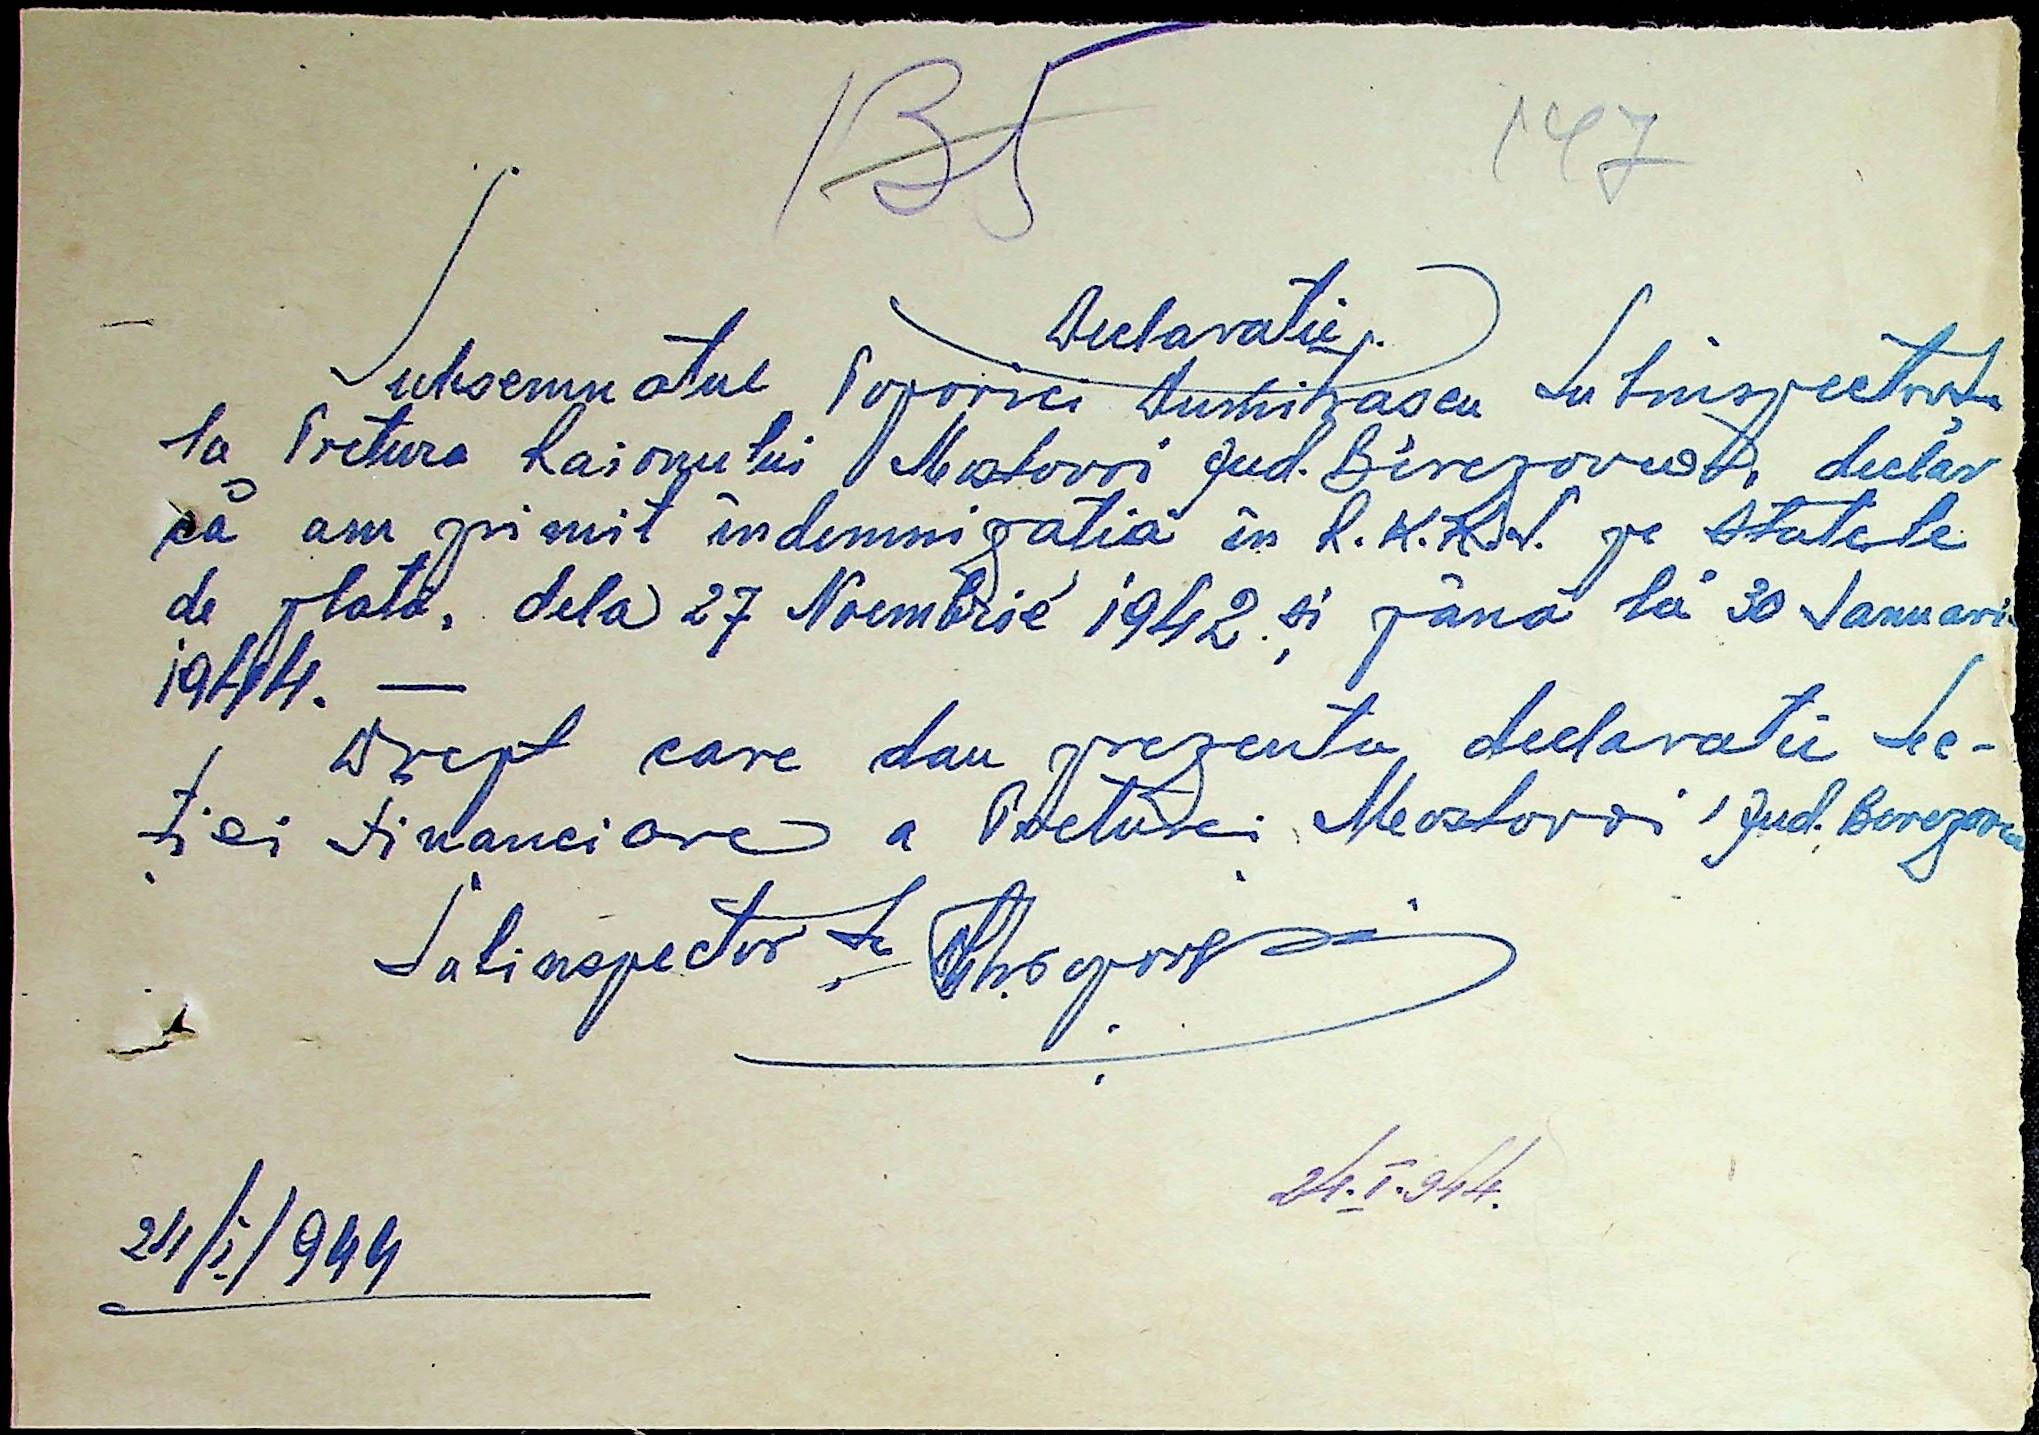 135
147
Declaratie.
Subsemnatul Popovici Dumitrascu Subinspector
la Pretura Raionului Mostovoi Jud. Berezovca, declar
că am primit indemnizatia în R.K.K.S. pe statele
de plată, dela 27 Noembrie 1942 și până la 30 Ianuarie
1944. —
Drept care dau prezenta declaratie Sec-
ției Financiare a Preturei Mostovoi, Jud. Berezovca
Subinspector
24.I.944.
24/I/944